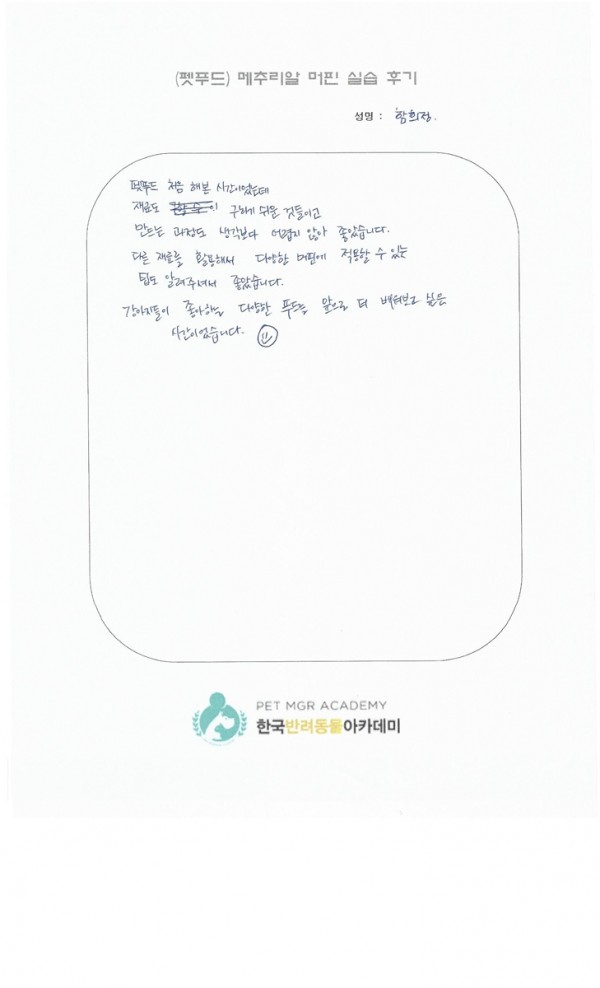 (펫푸드) 메추리알 머핀 실습 후기
성명 : 함희정.
펫푸드 처음 해본 시간이었는데
재료도 구하기 쉬운 것들이고
만드는 과정도 생각보다 어렵지 않아 좋았습니다.
다른 재료를 활용해서 다양한 머핀에 적용할 수 있는
팁도 알려주셔서 좋았습니다.
강아지들이 좋아하는 다양한 푸드를 앞으로 더 배워보고 싶은
시간이었습니다.
PET MGR ACADEMY
한국반려동물아카데미